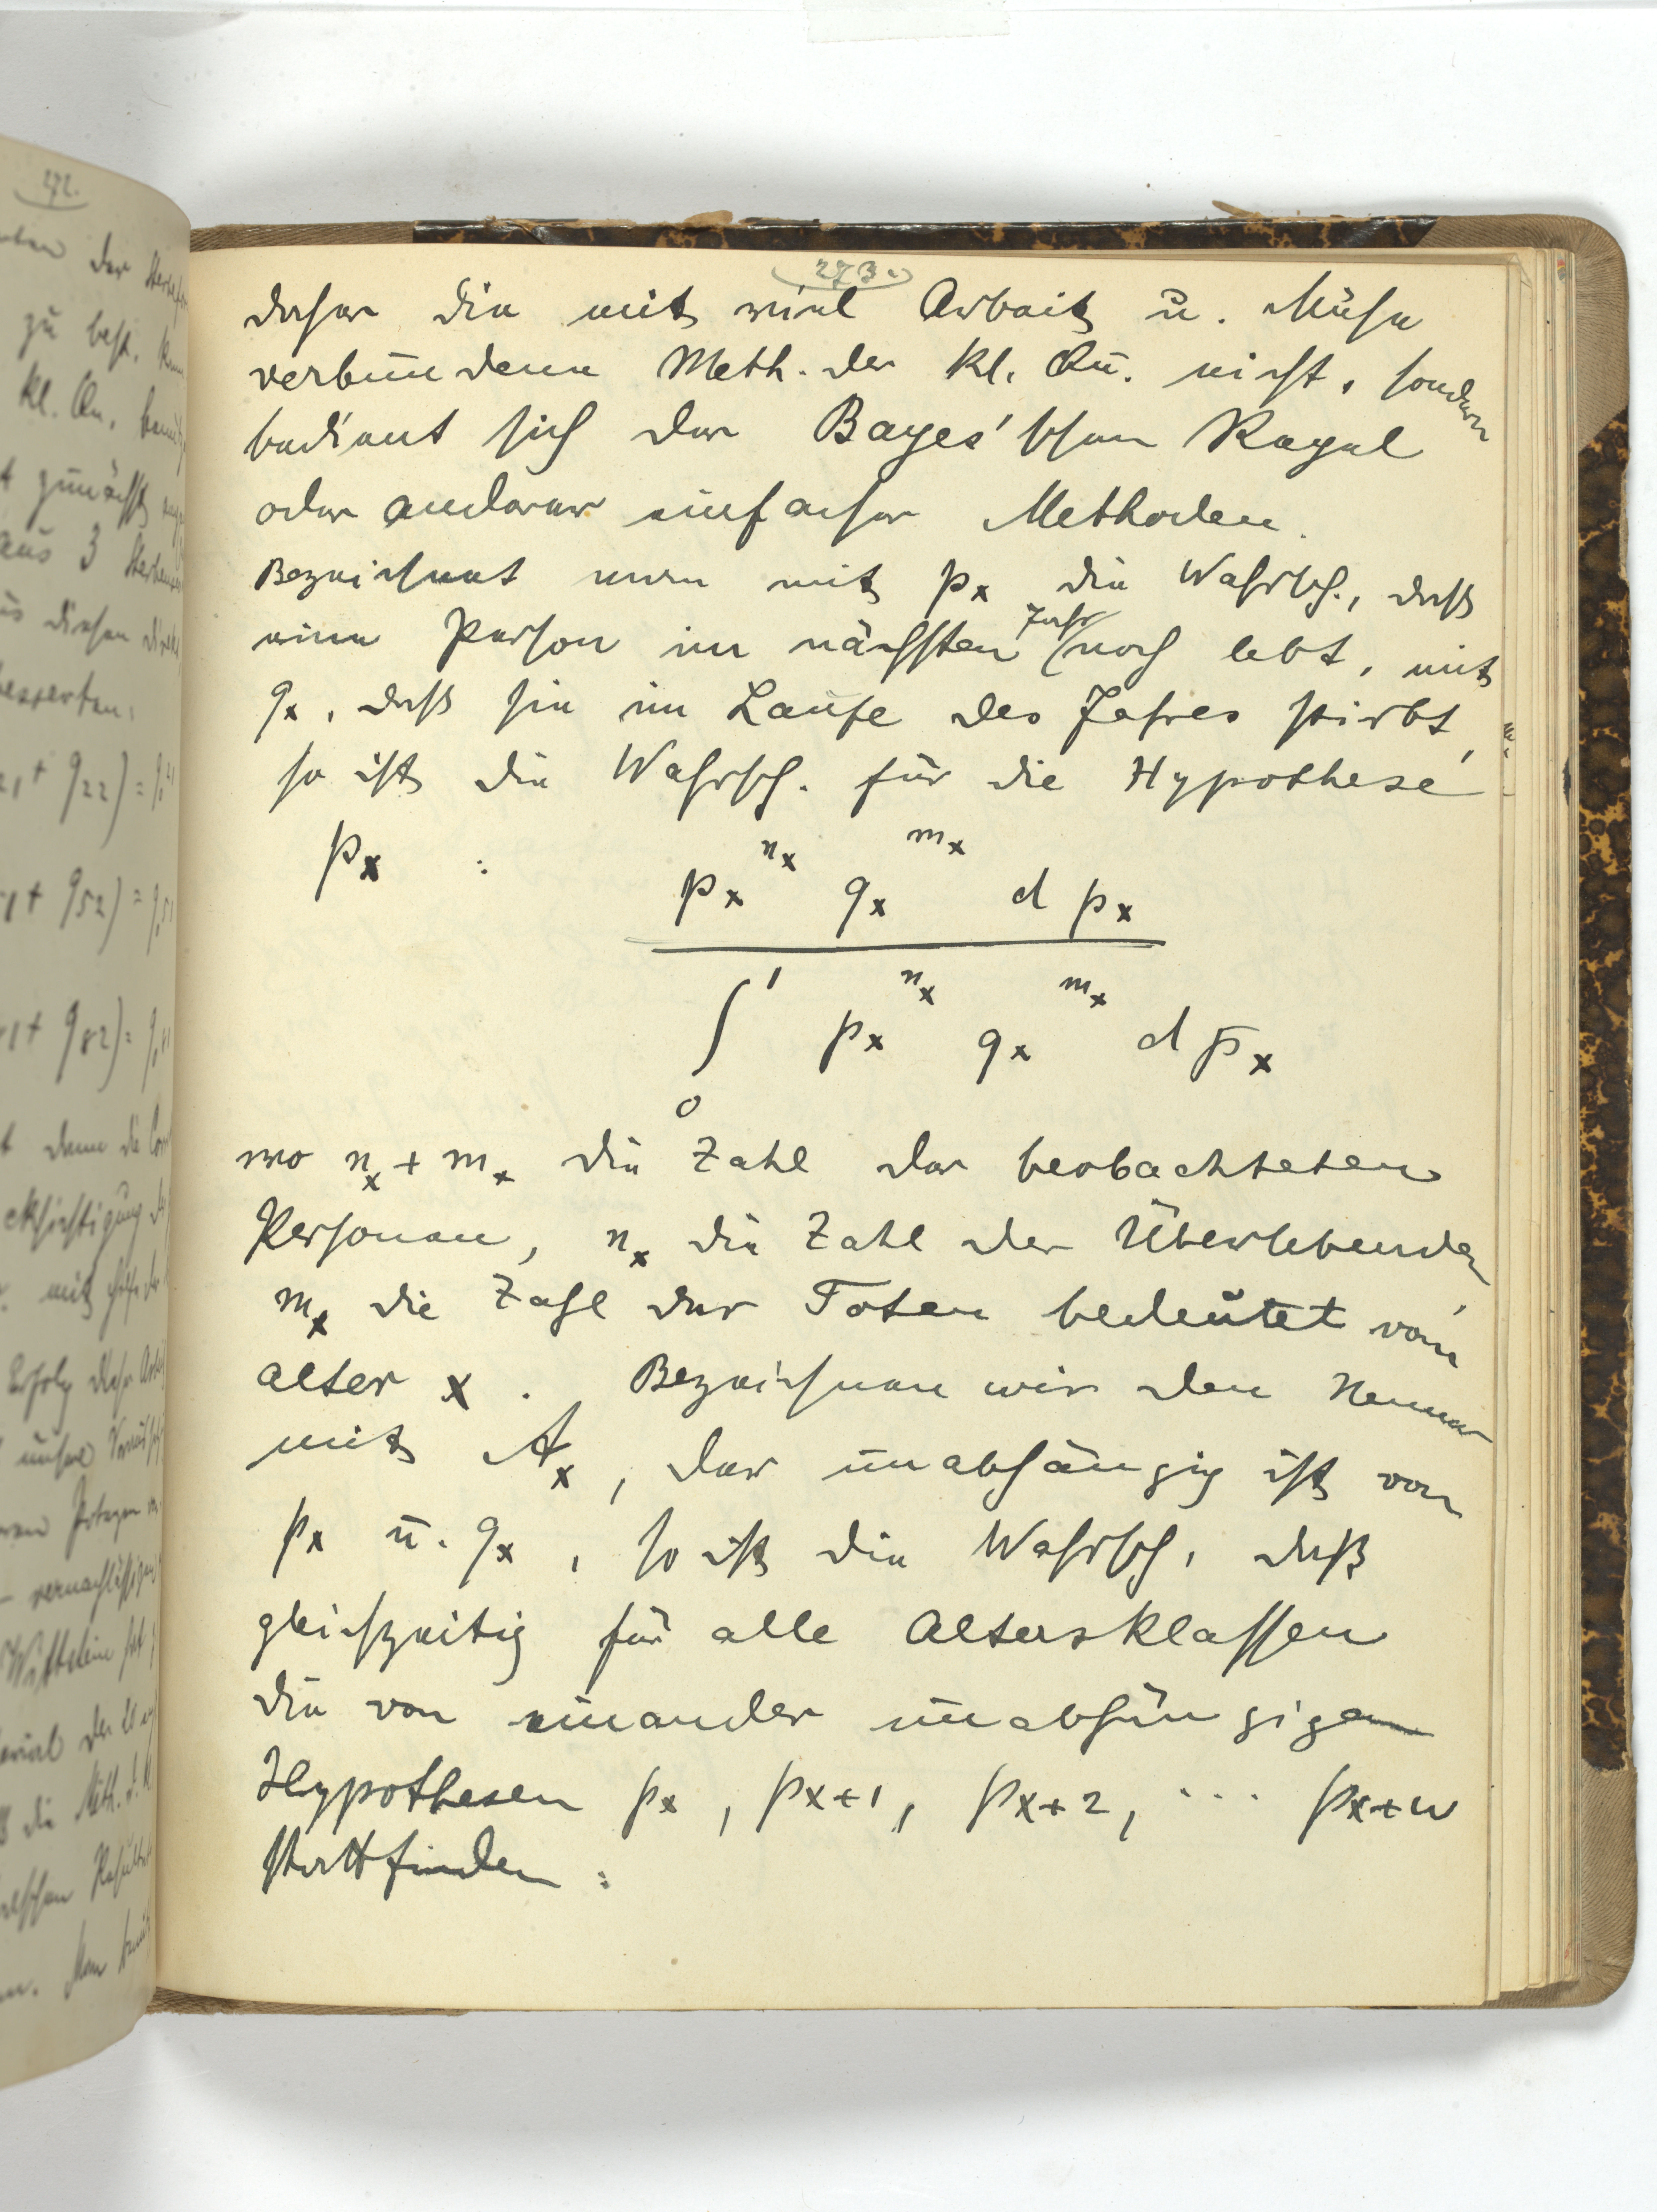 273.
daher die mit viel Arbeit u. Mühe
verbundene Meth. der kl. Qu. nicht, sondern
bedient sich der Bayes'schen Regel
oder anderer einfacher Methoden.
Bezeichnet man mit pₓ die Wahrsch., daß
eine Person im nächsten Jahr noch lebt, mit
qₓ, daß sie im Laufe des Jahres stirbt,
so ist die Wahrsch. für die Hypothese
pₓ :
pₓ^nₓ qₓ^mₓ d pₓ
∫₀¹ pₓ^nₓ qₓ^mₓ d pₓ
wo nₓ + mₓ die Zahl der beobachteten
Personen, nₓ die Zahl der Überlebenden,
mₓ die Zahl der Toten bedeutet vom
alter x. Bezeichnen wir den Nenner
mit Aₓ, der unabhängig ist von
pₓ u. qₓ, so ist die Wahrsch, daß
gleichzeitig für alle Altersklassen
die von einander unabhängigen
Hypothesen pₓ, pₓ₊₁, pₓ₊₂, ... pₓ₊w
stattfinden :
272.
der
zu best.
kl. Qu.
zunächst
aus 3
diesen
q₂₂) =
q₅₂) =
q₈₂) =
denn die
mit
Erfolg
unsere
Wittstein
die Meth. d. kl.
Man